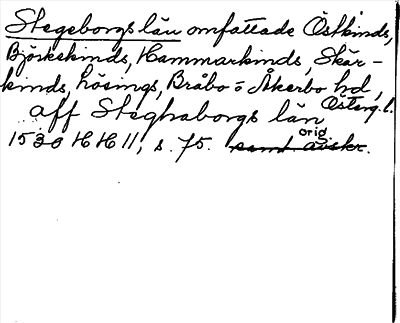 Stegeborgs län omfattade Östkinds,
Björkekinds, Hammarkinds, Skär-
kinds, Lösings, Bråbo o Åkerbo hd,
Österg. l.
aff Steghaborgs län
orig.
1530 HH 11, s. 75. samt avskr.